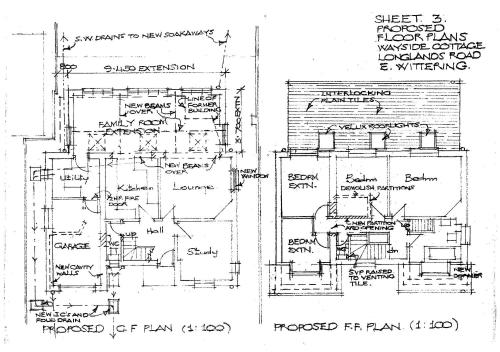 SHEET 3.
PROPOSED
FLOOR PLANS
WAYSIDE COTTAGE
LONGLANDS ROAD
E. WITTERING.
S.W. DRAINS TO NEW SOAKAWAYS
800
9.450 EXTENSION
3.700 EXTN.
NEW BEAMS
OVER
LINE OF
FORMER
BUILDING
FAMILY ROOM
EXTENSION
NEW BEAMS
OVER
Utility
Kitchen
Lounge
NEW
WINDOW
½ H.F. FIRE
DOOR
UP
Hall
WC
GARAGE
Study
NEW CAVITY
WALLS
NEW I.C'S AND
FOUL DRAIN
PROPOSED G.F PLAN (1:100)
INTERLOCKING
PLAIN TILES
VELUX ROOFLIGHTS
BEDRM
EXTN.
Bedrm
Bedrm
DEMOLISH PARTITIONS
NEW PARTITION
AND OPENING
BEDRM
EXTN.
dn
SVP RAISED
TO VENTING
TILE.
NEW
DORMER
PROPOSED F.F. PLAN (1:100)